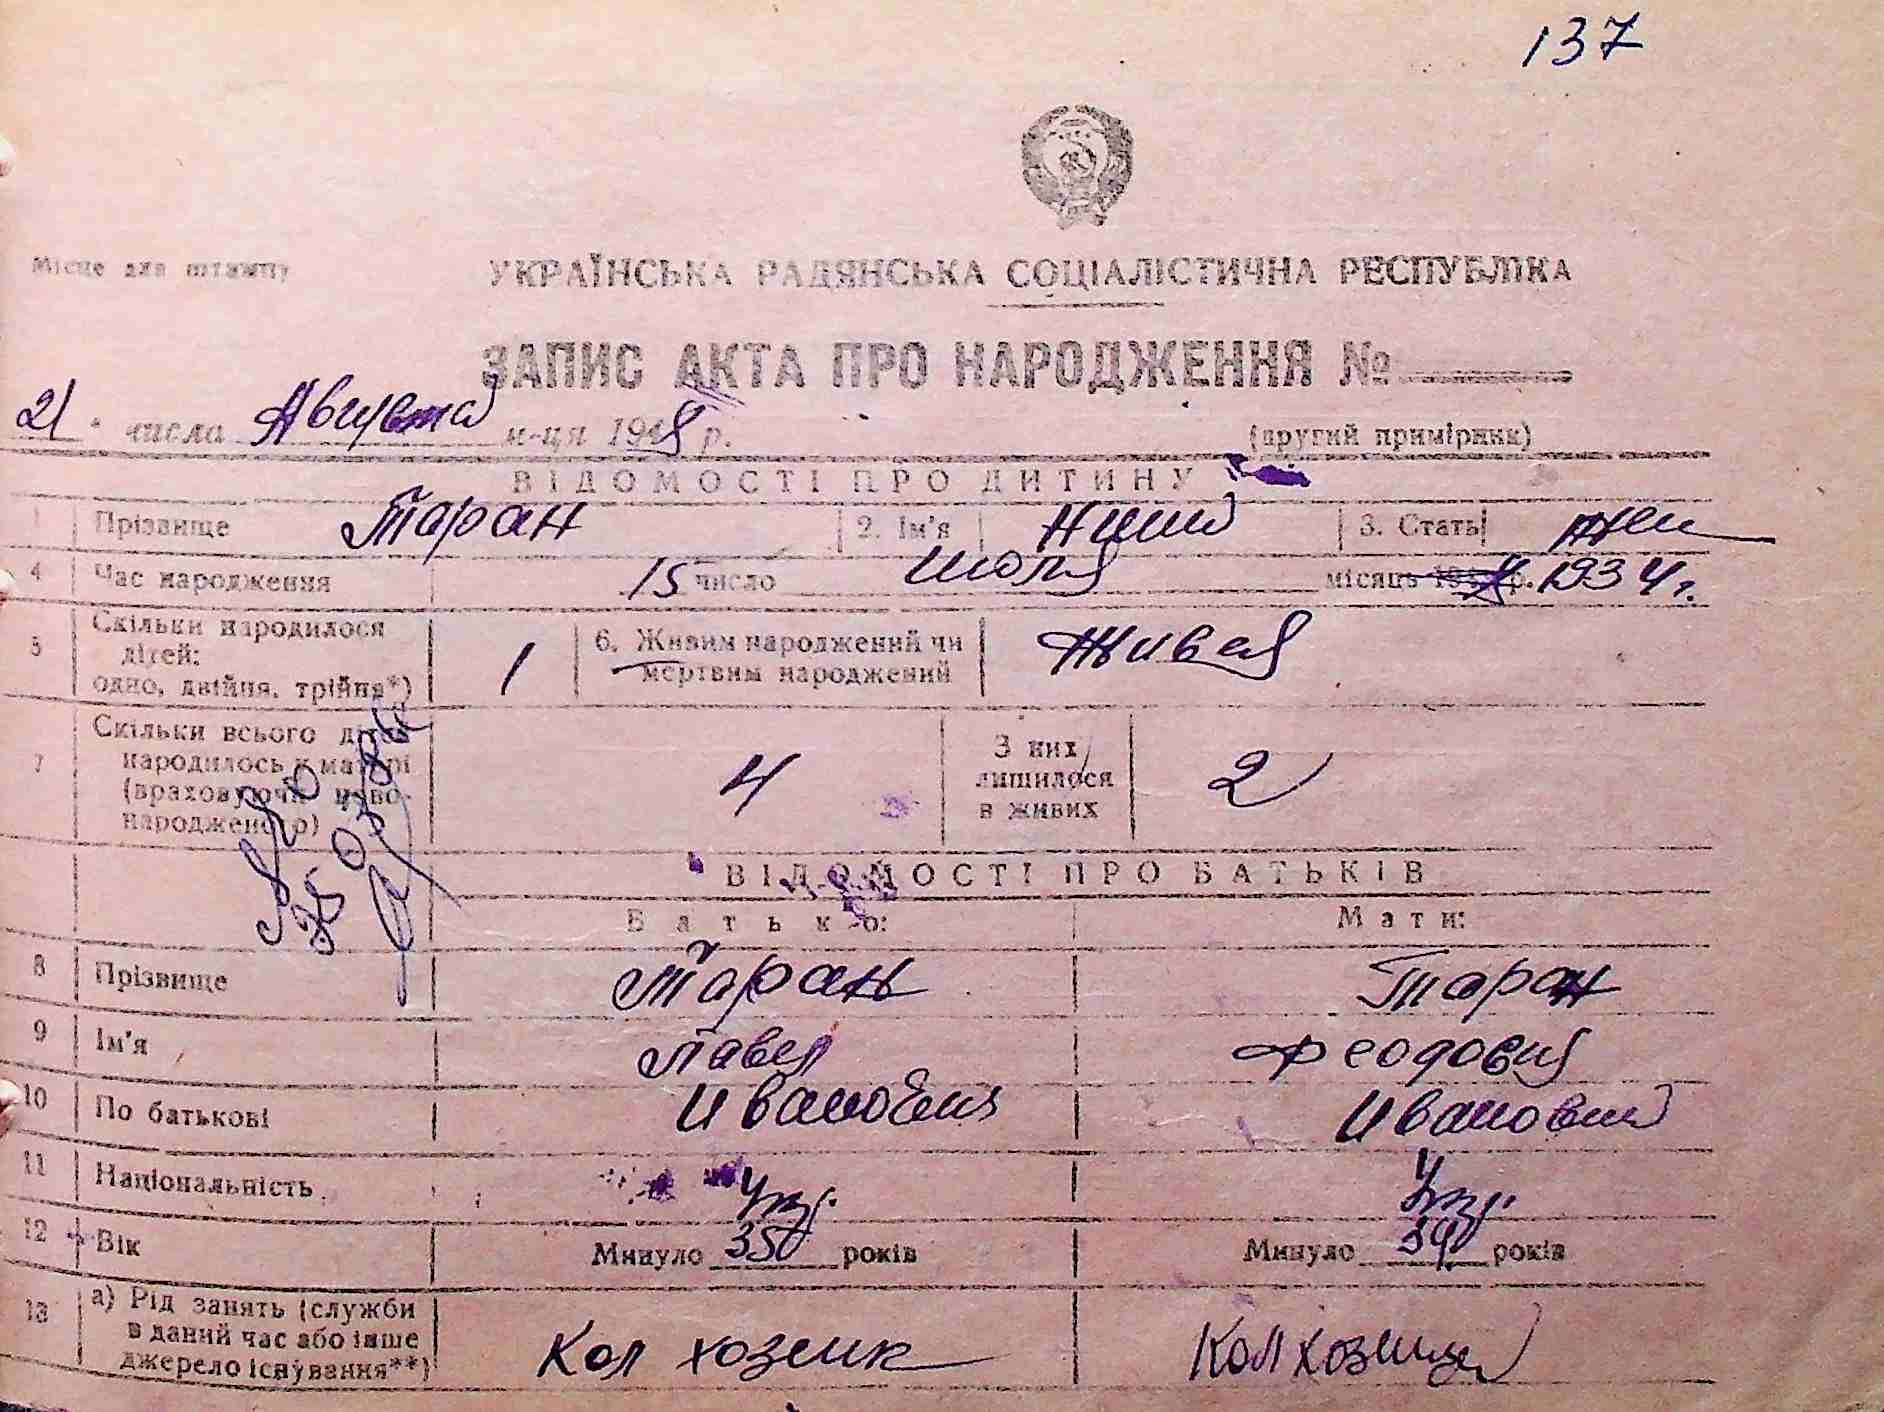 137
Місце для штампу
УКРАЇНСЬКА РАДЯНСЬКА СОЦІАЛІСТИЧНА РЕСПУБЛІКА
ЗАПИС АКТА ПРО НАРОДЖЕННЯ №
21 числа Августа м-ця 1948 р. (другий примірник)
ВІДОМОСТІ ПРО ДИТИНУ
1 Прізвище Таран 2. Ім'я Нина 3. Стать жен
4 Час народження 15 число июля місяць 194 р. 1934 г.
5 Скільки народилося
дітей:
одно, двійня, трійня*) 1 6. Живим народжений чи
мертвим народжений Живая
7 Скільки всього дітей
народилось у матері
(враховуючи ново-
народженого) 4 З них
лишилося
в живих 2
ВІДОМОСТІ ПРО БАТЬКІВ
Батько: Мати:
8 Прізвище Таран Таран
9 Ім'я Павел Феодосия
10 По батькові Иванович Ивановна
11 Національність Укр. Укр.
12 Вік Минуло 35 років Минуло 34 років
13 а) Рід занять (служби
в даний час або інше
джерело існування**) Колхозник Колхозница